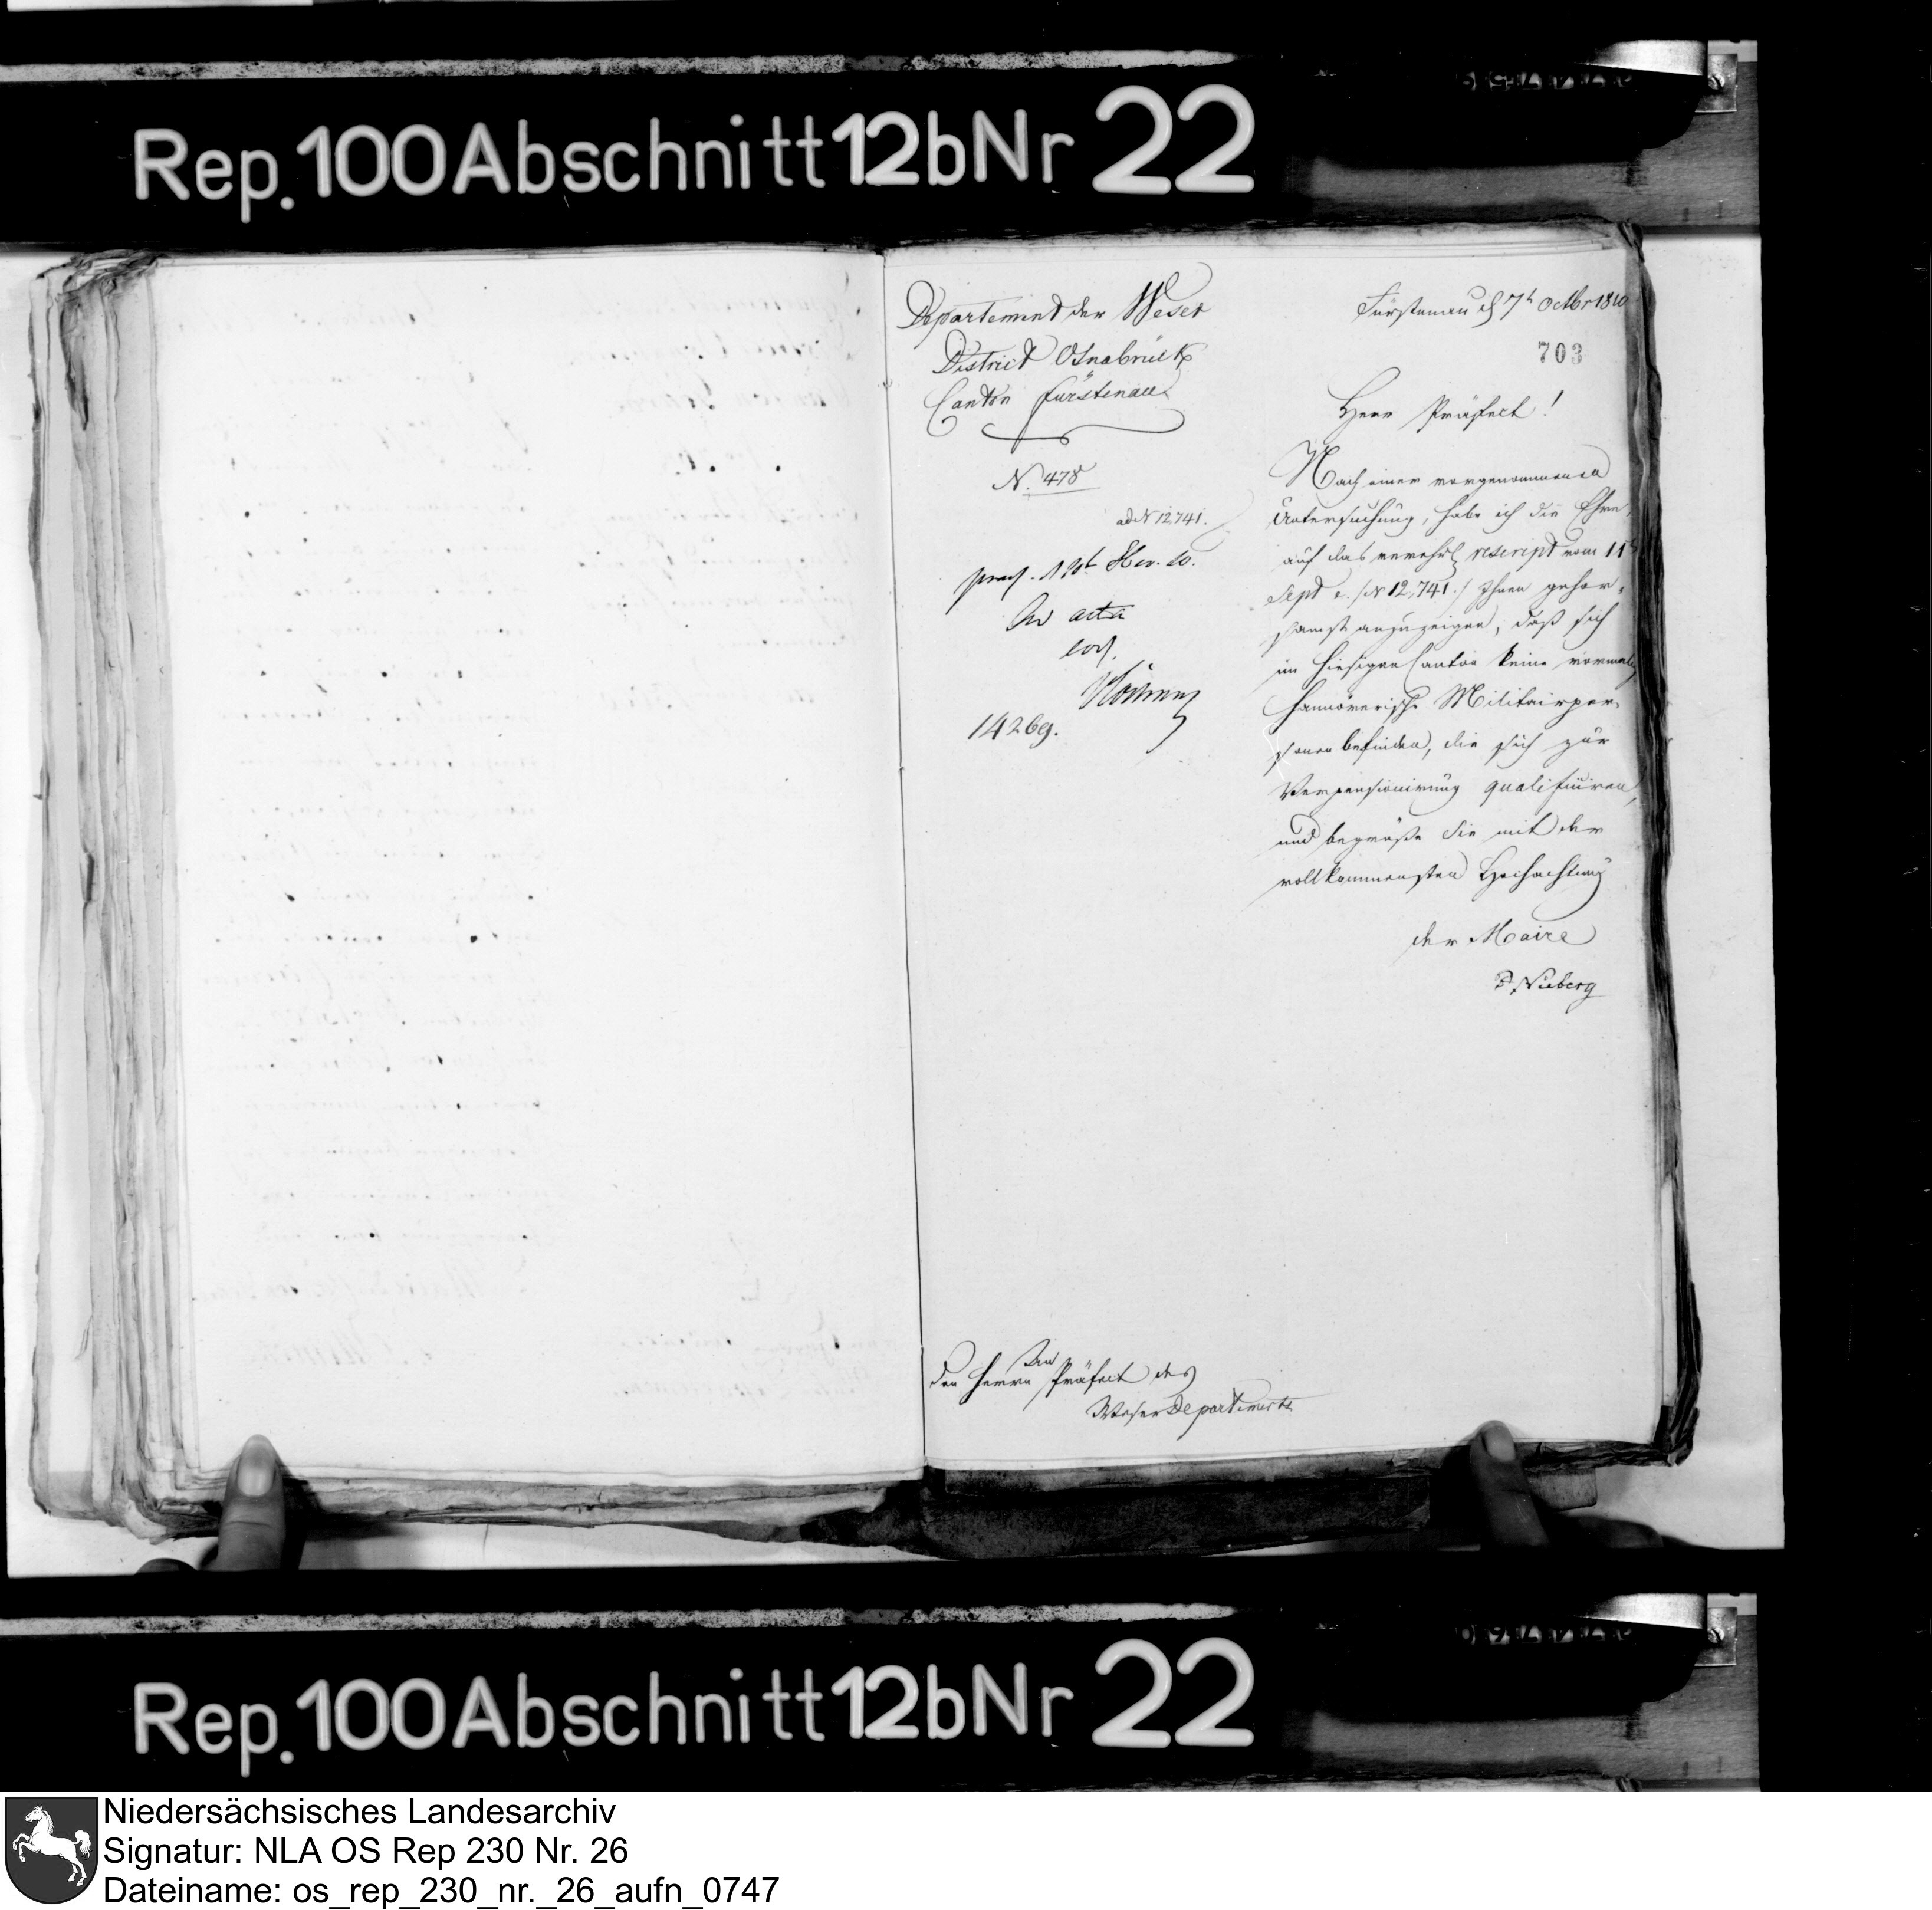 Rep. 100 Abschnitt 12b Nr 22
Departement der Weser
District Osnabrück
Canton Fürstenau
N. 478
ad N 12741.
Ad acta
14269.
Fürstenau d 7t Octbr 1810
703
Herr Präfect!
Nach einer vorgenommenen
Untersuchung, habe ich die Ehre,
auf das verehrl. rescript vom 11t
Sept c. (N 12,741.) Ihnen gehor-
samst anzuzeigen, daß sich
im hiesigen Canton keine vormals
hannöverische Militairper-
sonen befinden, die sich zur
Verpensionirung qualificiren,
und begrüße Sie mit der
vollkommensten Hochachtung
der Maire
Nieberg
An
den Herrn Präfect des
Weser Departements
Rep. 100 Abschnitt 12b Nr 22
Niedersächsisches Landesarchiv
Signatur: NLA OS Rep 230 Nr. 26
Dateiname: os_rep_230_nr._26_aufn_0747